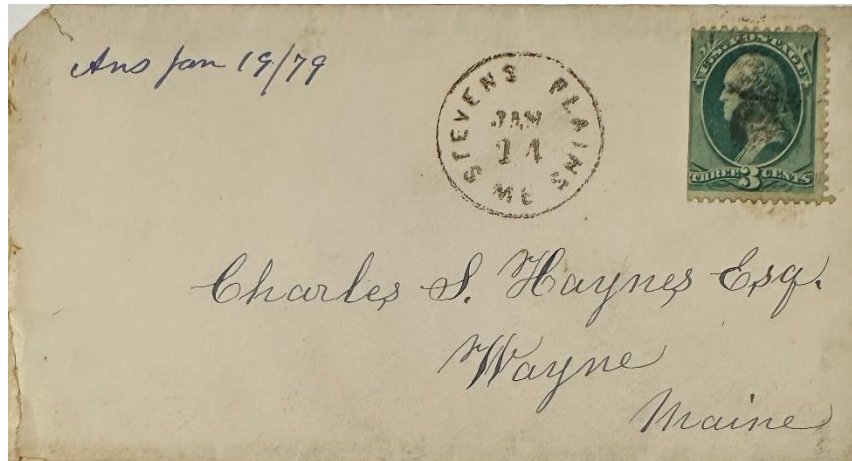 Ans Jan 19/79
STEVENS PLAINS
JAN
14
ME
U.S. POSTAGE
THREE 3 CENTS
Charles S. Haynes Esq.
Wayne
Maine